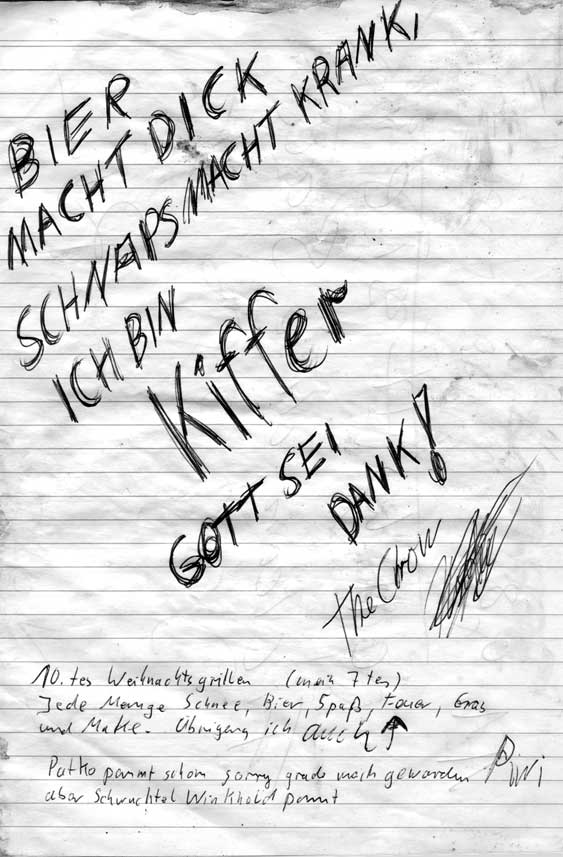 BIER
MACHT DICK
SCHNAPS MACHT KRANK,
ICH BIN
Kiffer
GOTT SEI
DANK!
The Crow
10.tes Weihnachtsgrillen (mein 7 tes)
Jede Menge Schnee, Bier, Spaß, Feuer, Gras
und Mukke. Übrigens ich auch ↑
pennt schon sorry grade wach geworden
aber Schwuchtel pennt